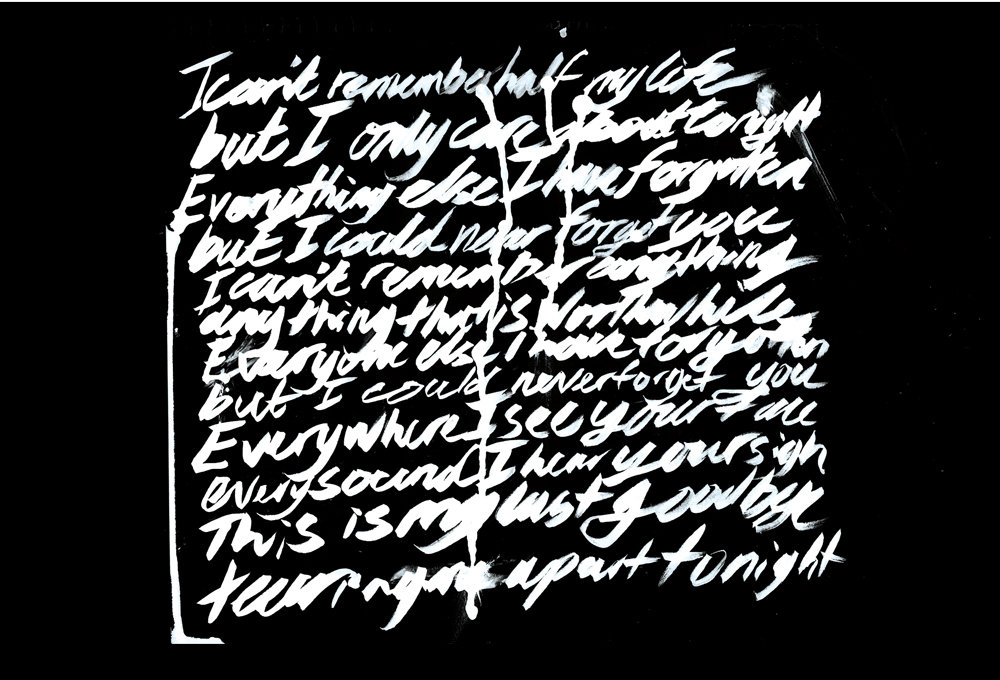 I can't remember half my life
but I only care about tonight
Everything else I have forgotten
but I could never forget you
I can't remember anything
anything that's Worthwhile
Everyone else I have forgotten
but I could never forget you
Everywhere I see your Face
every sound I hear your sigh
This is my last goodbye
tearing me apart tonight